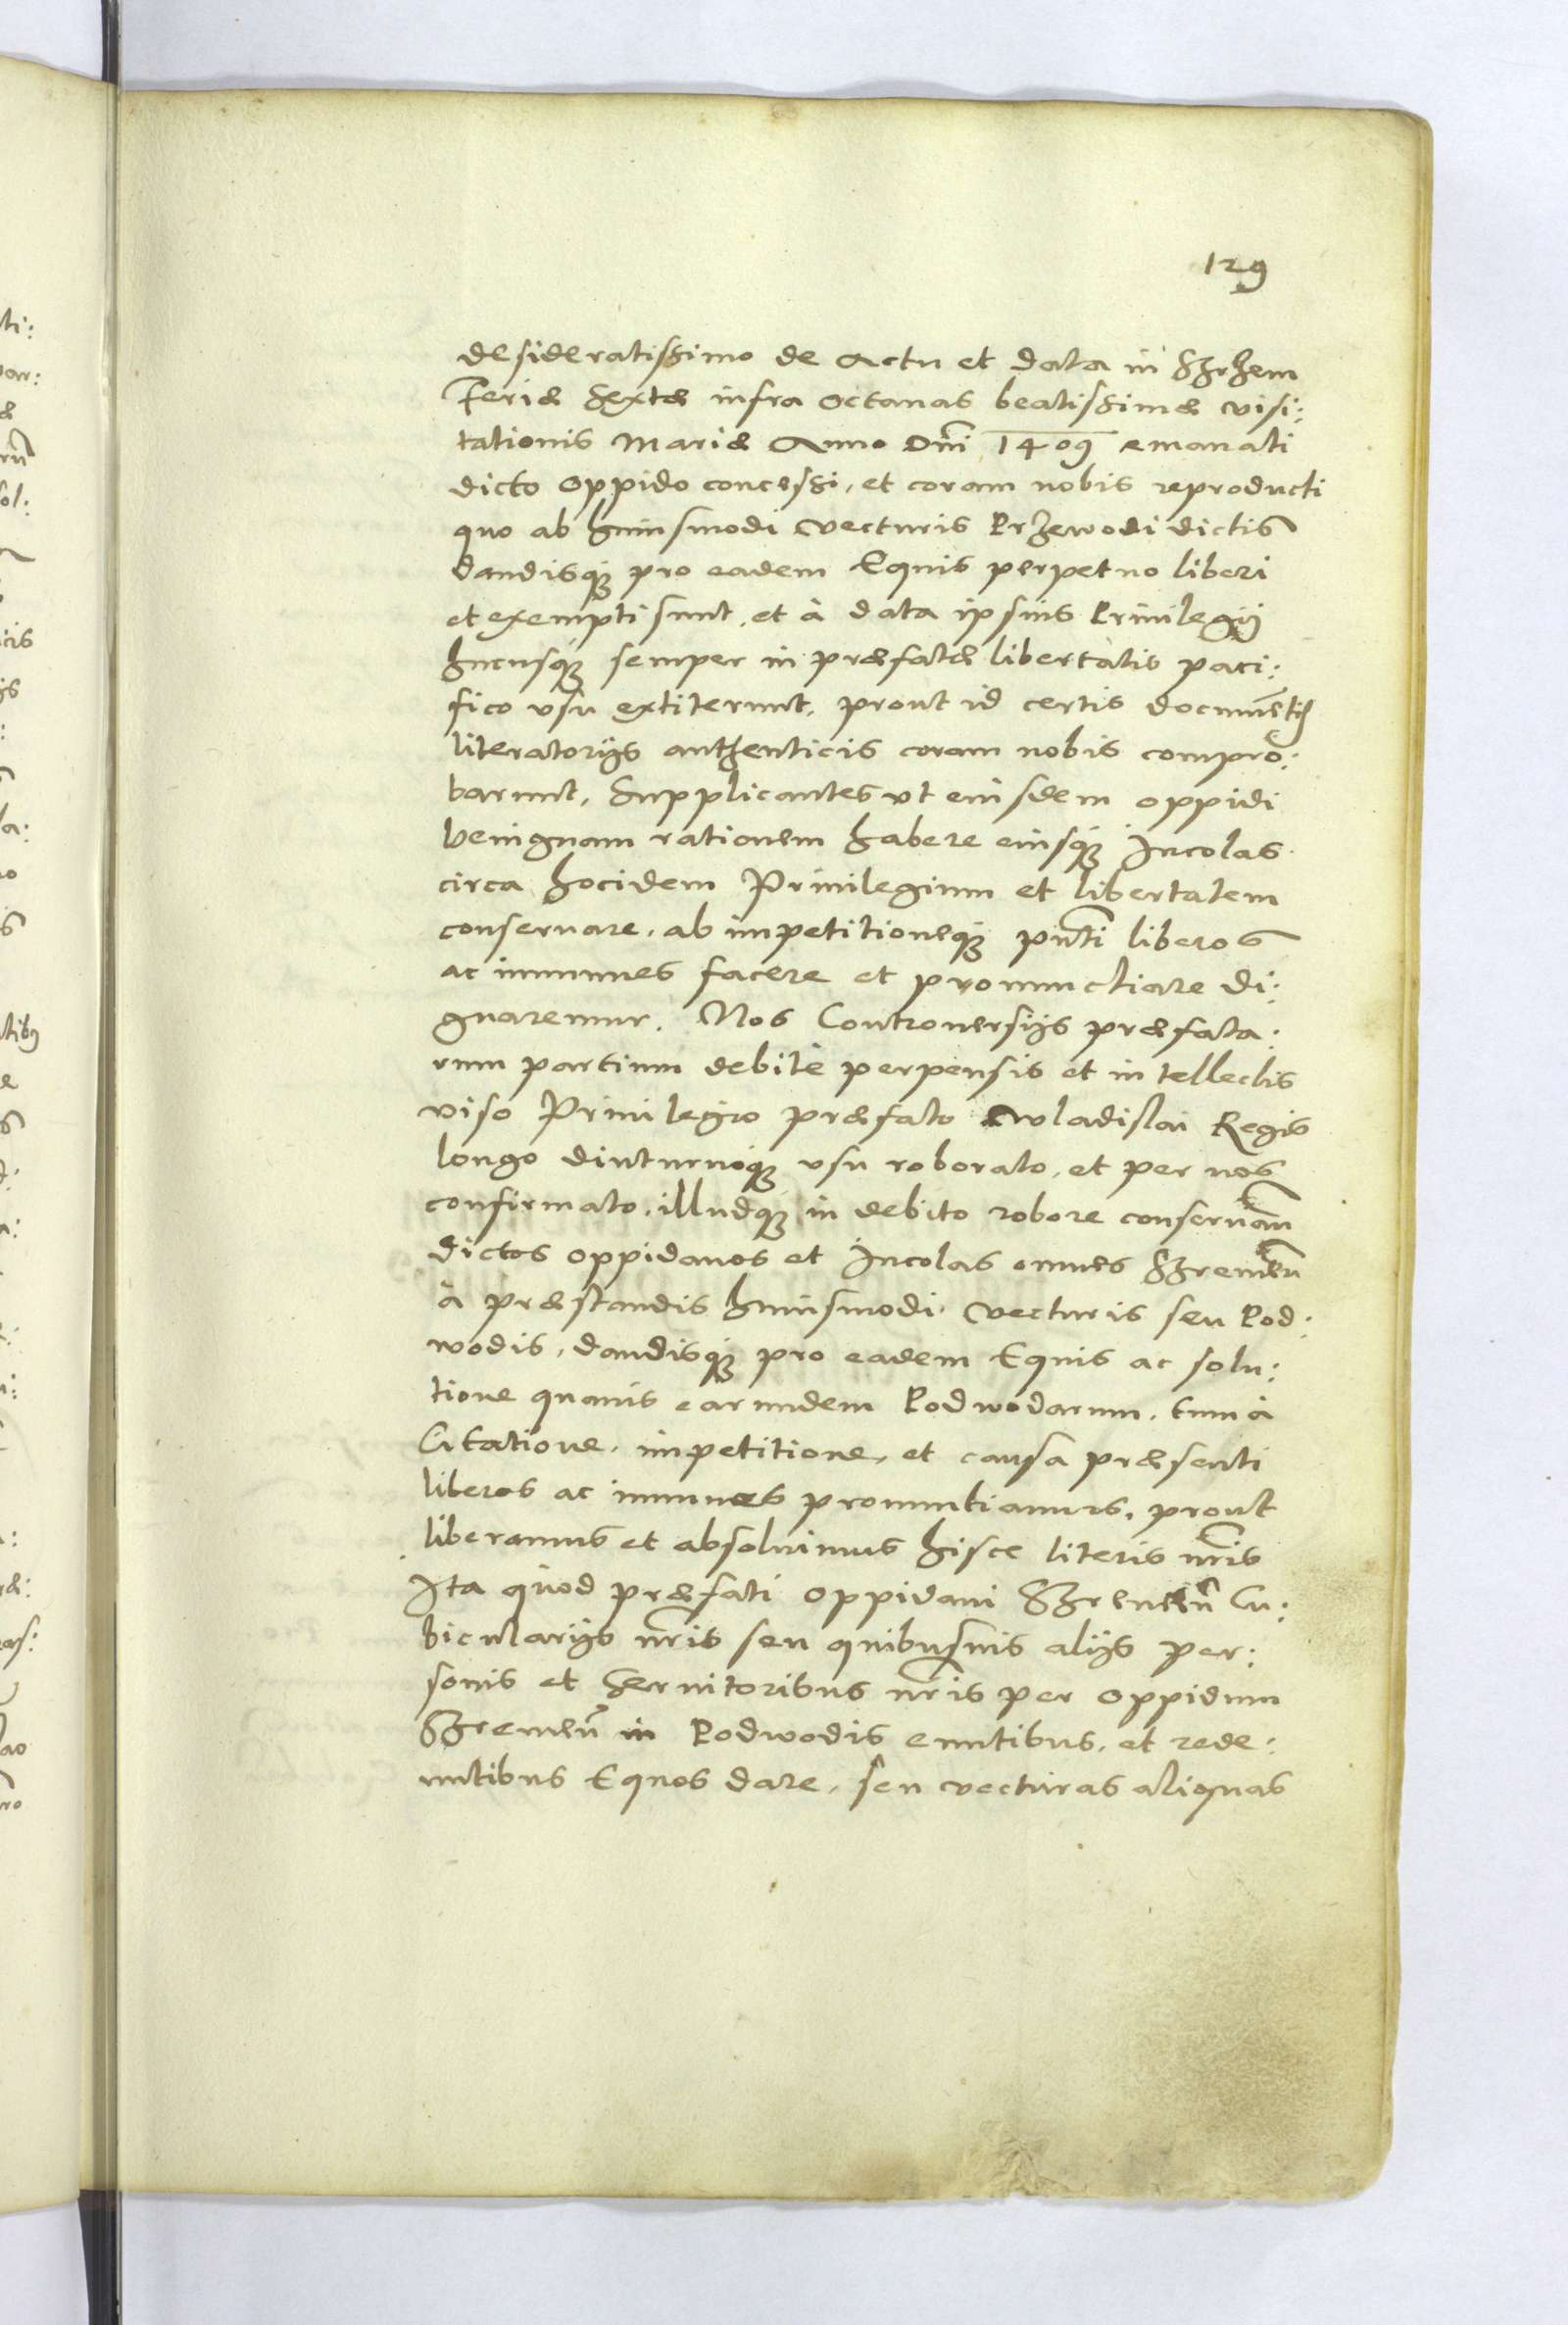 129
desideratissimo de Actu et data in Szrzem
Feriæ Sextæ infra Octauas beatissimæ visi:
tationis Mariæ Anno Dn̄i 1409 emanati
dicto Oppido concessi, et coram nobis reproducti
quo ab huiusmodi Vecturis Przewodi dictis
dandisq́ꝫ pro eadem Equis perpetuo liberi
et exempti sunt, et à data ipsius Priuilegij
hucusq́ꝫ semper in præfatæ libertatis paci:
fico vsu extiterunt, prout id certis documēntis
literatorijs authenticis coram nobis compro:
barunt, Supplicantes vt eiusdem oppidi
benignam rationem habere eiusq́ꝫ Incolas
circa hocidem Priuilegium et libertatem
conseruare, ab impetitioneq́ꝫ pn̄ti liberos
ac immunes facere et pronunctiare di:
gnaremur. Nos Controuersijs præfata:
rum partium debitè perpensis et intellectis
viso Priuilegio præfato Wladislai Regis
longo diuturnoq́ꝫ vsu roborato, et per nos
confirmato, illudq́ꝫ in debito robore conseruān
dictos oppidanos et Incolas omnes Szremēn
à præstandis huiusmodi Vecturis seu Pod:
wodis, dandisq́ꝫ pro eadem Equis ac solu:
tione quauis earundem Podwodarum, tum à
Citatione, impetitione, et causa præsenti
liberos ac immunes pronuntiamus, prout
liberamus et absoluimus hisce literis nr̄is
Ita quod præfati Oppidani Szremēn Cu:
bicularijs nr̄is seu quibusuis alijs per:
sonis et Seruitoribus nr̄is per Oppidum
Szremēn in Podwodis euntibus, et rede:
untibus Equos dare, seu vecturas aliquas